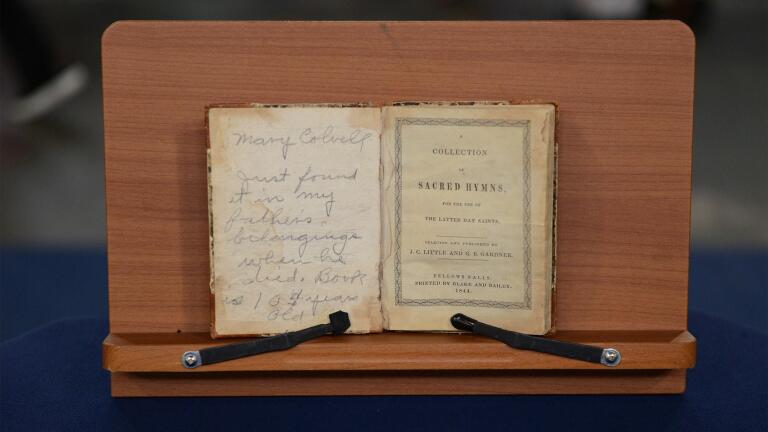 Mary Colvell
Just found
it in my
father's
belongings
when he
died. Book
is 105 years
Old
A
COLLECTION
OF
SACRED HYMNS,
FOR THE USE OF
THE LATTER DAY SAINTS.
SELECTED AND PUBLISHED BY
J. C. LITTLE AND G. B. GARDNER.
BELLOWS FALLS.
PRINTED BY BLAKE AND BAILEY,
1844.